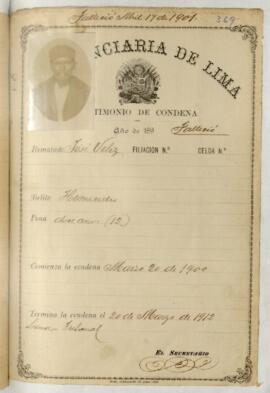 Falleció Abril 17 de 1901.
369
NCIARIA DE LIMA
TIMONIO DE CONDENA
Año de 189
Falleció
Rematado José Veliz FILIACION N.° CELDA N.°
Delito Homicidio
Pena doce años (12)
Comienza la condena Marzo 20 de 1900
Termina la condena el 20 de Marzo de 1912
Tribunal
EL SECRETARIO